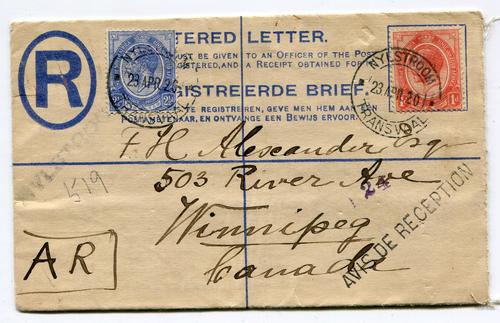 R
TERED LETTER.
MUST BE GIVEN TO AN OFFICER OF THE POST
REGISTERED, AND A RECEIPT OBTAINED FOR
GISTREERDE BRIEF.
TE REGISTREREN, GEVE MEN HEM AAN EEN
AMBTENAAR, EN ONTVANGE EEN BEWIJS ERVOOR.
NYLSTROOM
23 APR 20
NYLSTROOM
23 APR 20
TRANSVAAL
1d
F H Alexander Esqr
503 River Ave
Winnipeg
Canada
NYLSTROOM
519
24
AVIS DE RECEPTION
AR